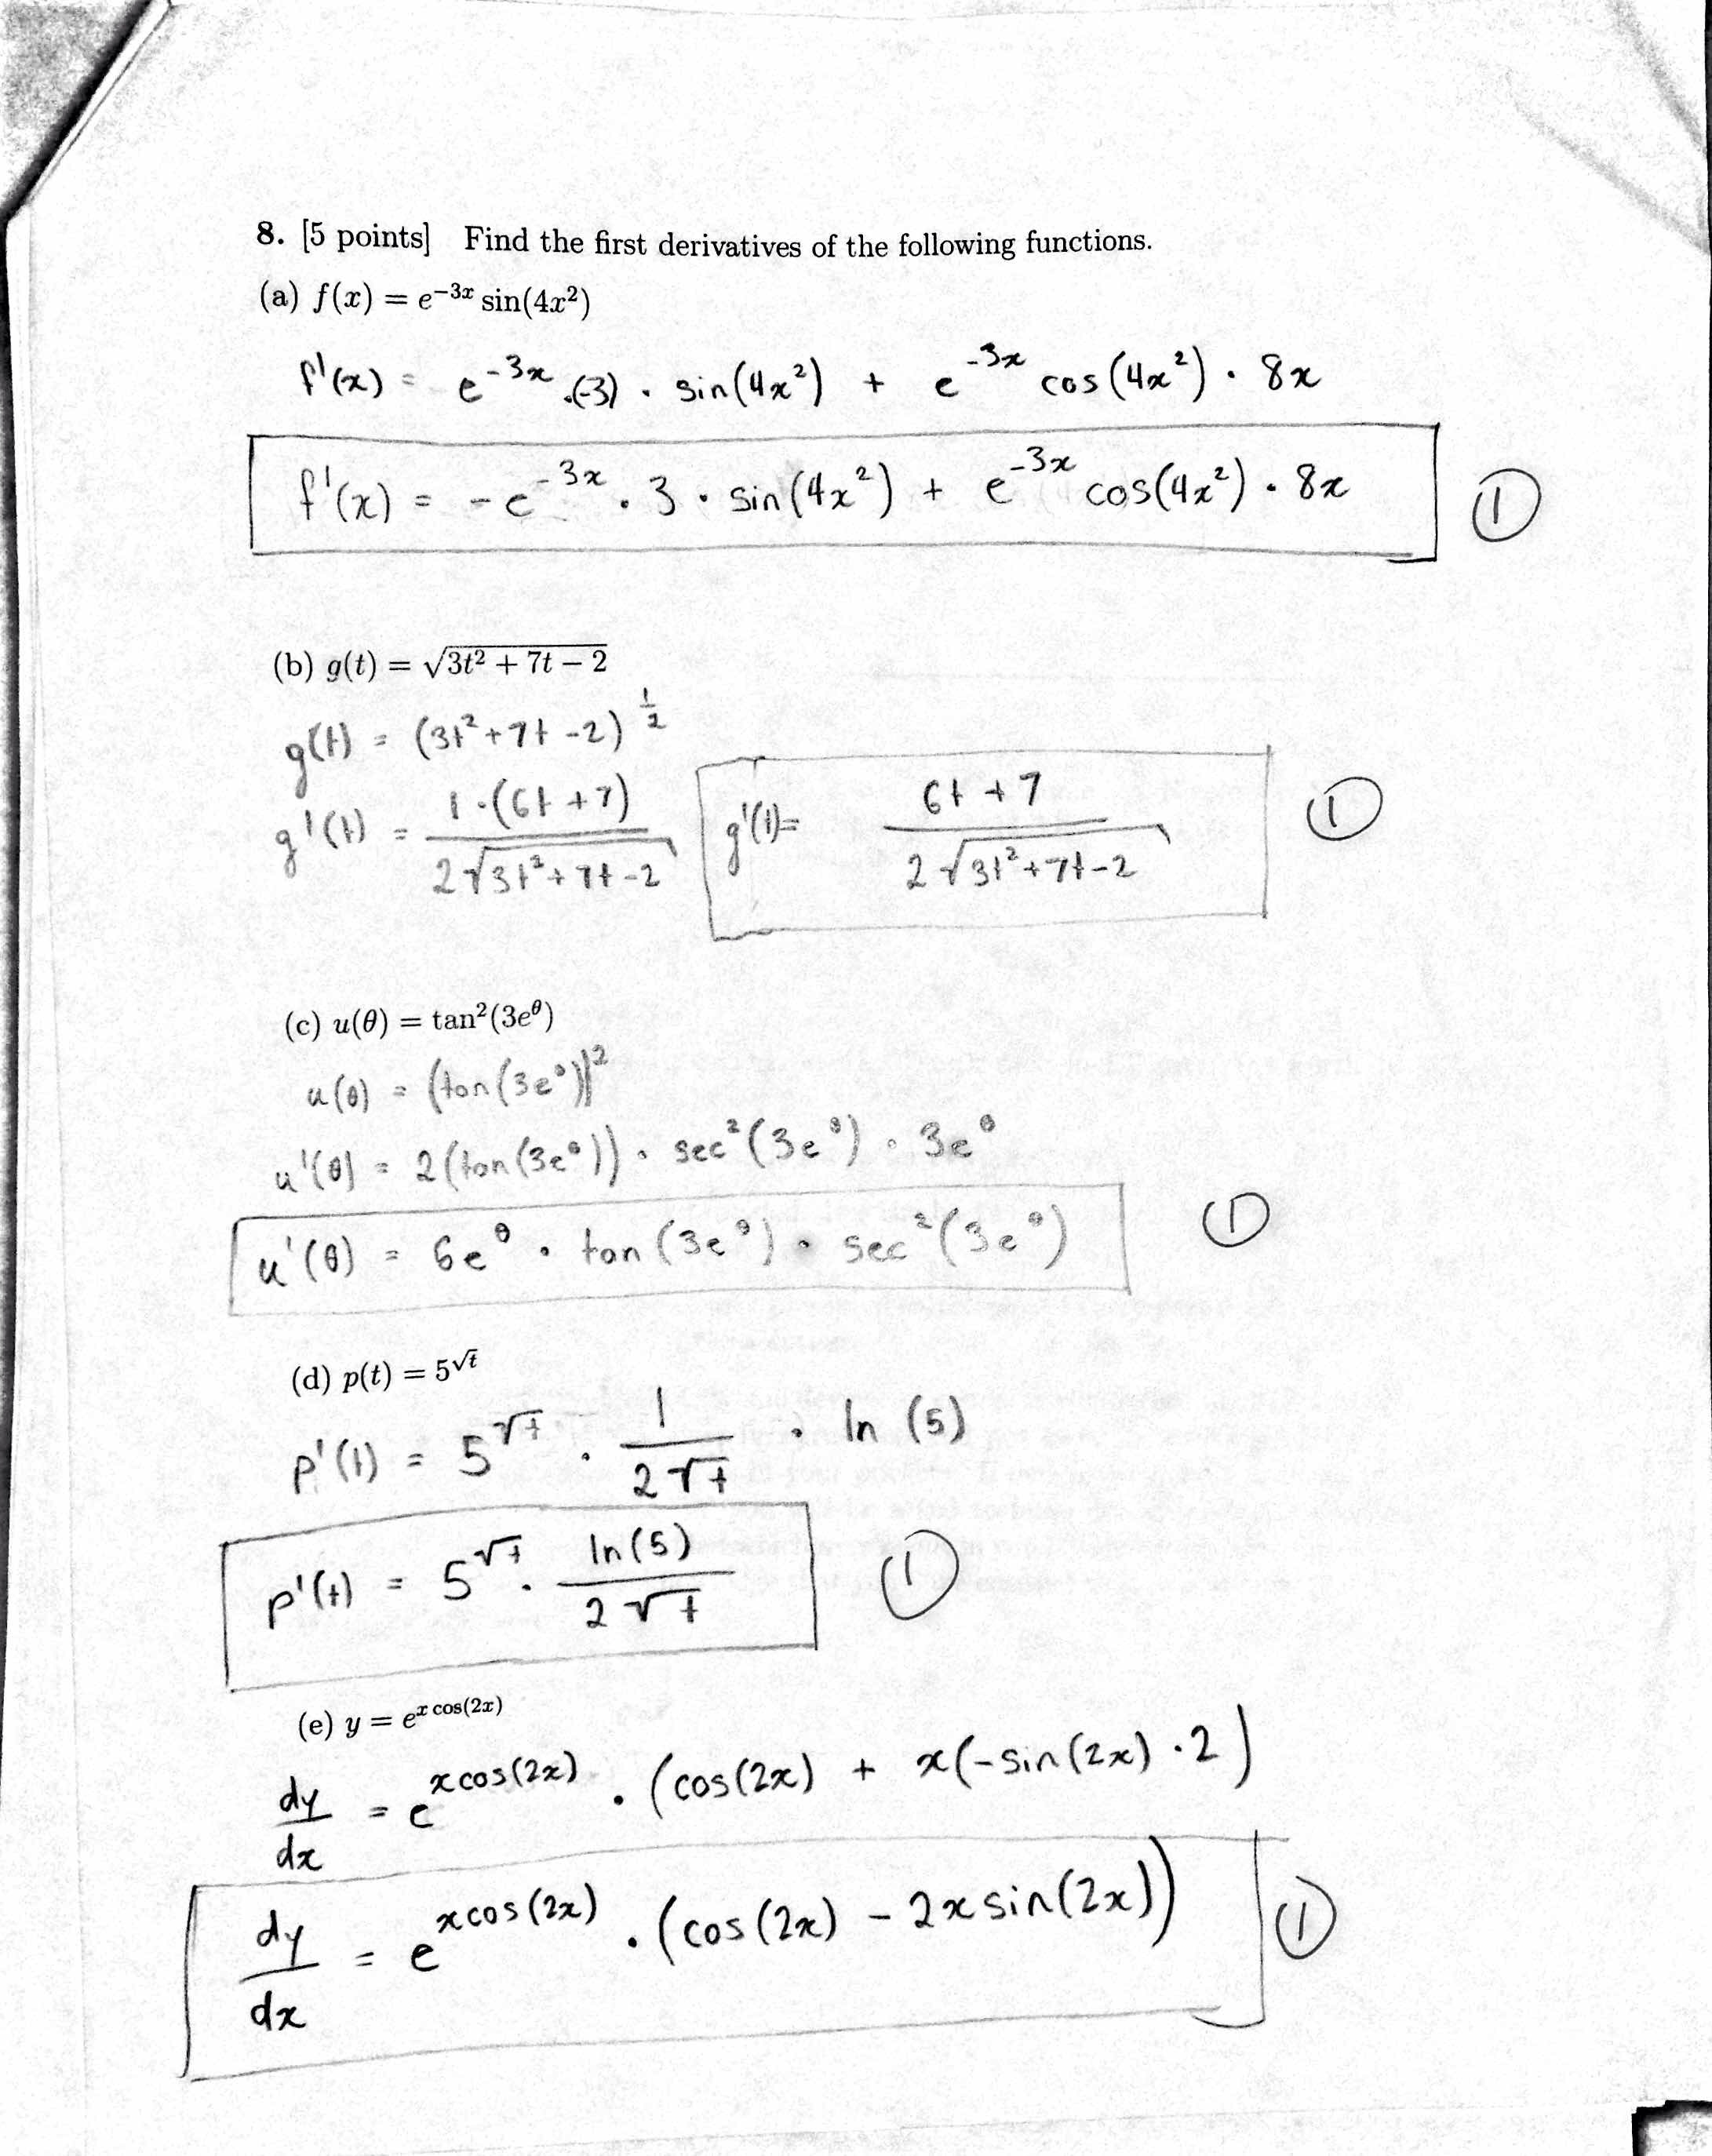 8. [5 points] Find the first derivatives of the following functions.
(a) f(x) = e^{-3x} sin(4x²)
f'(x) = e^{-3x} ·(-3) · sin(4x²) + e^{-3x} cos(4x²) · 8x
f'(x) = -e^{-3x} · 3 · sin(4x²) + e^{-3x} cos(4x²) · 8x ①
(b) g(t) = √(3t² + 7t − 2)
g(t) = (3t²+7t-2)^{1/2}
g'(t) = 1·(6t+7) / 2√(3t²+7t-2) g'(t)= 6t+7 / 2√(3t²+7t-2) ①
(c) u(θ) = tan²(3e^θ)
u(θ) = (tan(3e^θ))²
u'(θ) = 2(tan(3e^θ)) · sec²(3e^θ) · 3e^θ
u'(θ) = 6e^θ · tan(3e^θ) · sec²(3e^θ) ①
(d) p(t) = 5^{√t}
p'(t) = 5^{√t} · 1 / 2√t · ln (5)
p'(t) = 5^{√t} · ln(5) / 2√t ①
(e) y = e^{x cos(2x)}
dy/dx = e^{xcos(2x)} · (cos(2x) + x(-sin(2x) ·2)
dy/dx = e^{xcos(2x)} · (cos(2x) - 2x sin(2x)) ①